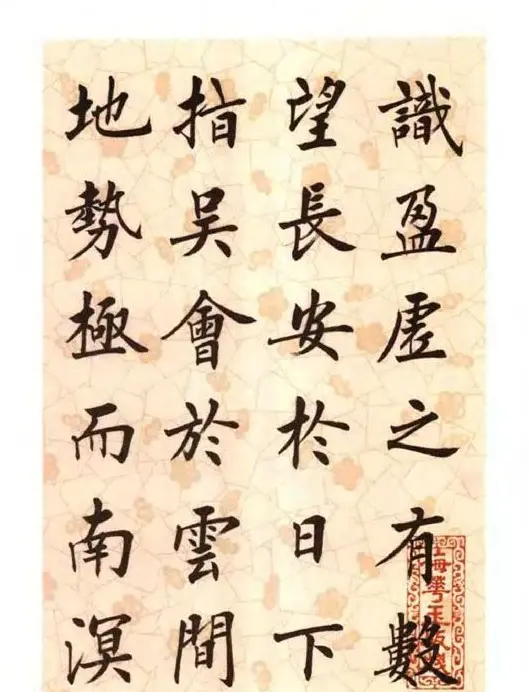 識盈虛之有數
望長安於日下
指吳會於雲間
地勢極而南溟